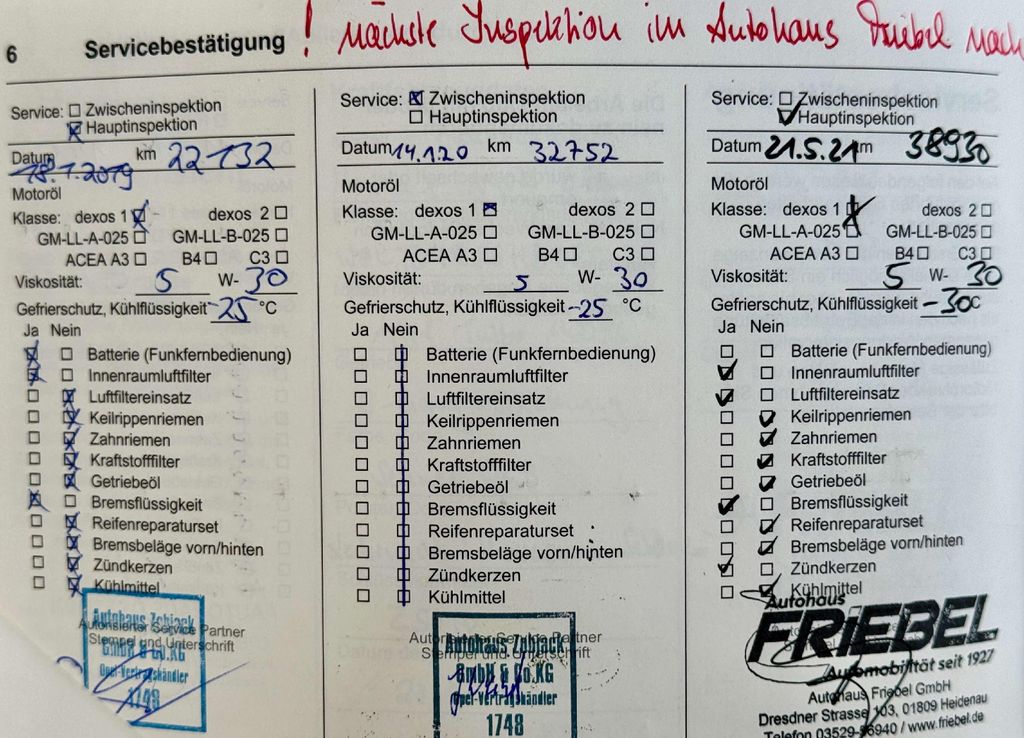 6 Servicebestätigung ! nächste Inspektion im Autohaus Friebel nach
Service: Zwischeninspektion
Hauptinspektion
Datum 18.1.2019 km 22132
Motoröl
Klasse: dexos 1 dexos 2
GM-LL-A-025 GM-LL-B-025
ACEA A3 B4 C3
Viskosität: 5 W- 30
Gefrierschutz, Kühlflüssigkeit -25 °C
Ja Nein
Batterie (Funkfernbedienung)
Innenraumluftfilter
Luftfiltereinsatz
Keilrippenriemen
Zahnriemen
Kraftstofffilter
Getriebeöl
Bremsflüssigkeit
Reifenreparaturset
Bremsbeläge vorn/hinten
Zündkerzen
Kühlmittel
Autorisierter Service Partner
Stempel und Unterschrift
Autohaus Zobjack
GmbH & Co.KG
Opel-Vertragshändler
1748
Service: Zwischeninspektion
Hauptinspektion
Datum 14.1.20 km 32752
Motoröl
Klasse: dexos 1 dexos 2
GM-LL-A-025 GM-LL-B-025
ACEA A3 B4 C3
Viskosität: 5 W- 30
Gefrierschutz, Kühlflüssigkeit -25 °C
Ja Nein
Batterie (Funkfernbedienung)
Innenraumluftfilter
Luftfiltereinsatz
Keilrippenriemen
Zahnriemen
Kraftstofffilter
Getriebeöl
Bremsflüssigkeit
Reifenreparaturset
Bremsbeläge vorn/hinten
Zündkerzen
Kühlmittel
Autorisierter Service Partner
Stempel und Unterschrift
Autohaus Zobjack
GmbH & Co.KG
Opel-Vertragshändler
1748
Service: Zwischeninspektion
Hauptinspektion
Datum 21.5.21 km 38930
Motoröl
Klasse: dexos 1 dexos 2
GM-LL-A-025 GM-LL-B-025
ACEA A3 B4 C3
Viskosität: 5 W- 30
Gefrierschutz, Kühlflüssigkeit -30°C
Ja Nein
Batterie (Funkfernbedienung)
Innenraumluftfilter
Luftfiltereinsatz
Keilrippenriemen
Zahnriemen
Kraftstofffilter
Getriebeöl
Bremsflüssigkeit
Reifenreparaturset
Bremsbeläge vorn/hinten
Zündkerzen
Kühlmittel
Autohaus
FRiEBEL
Automobilität seit 1927
Autohaus Friebel GmbH
Dresdner Strasse 103, 01809 Heidenau
Telefon 03529-56940 / www.friebel.de